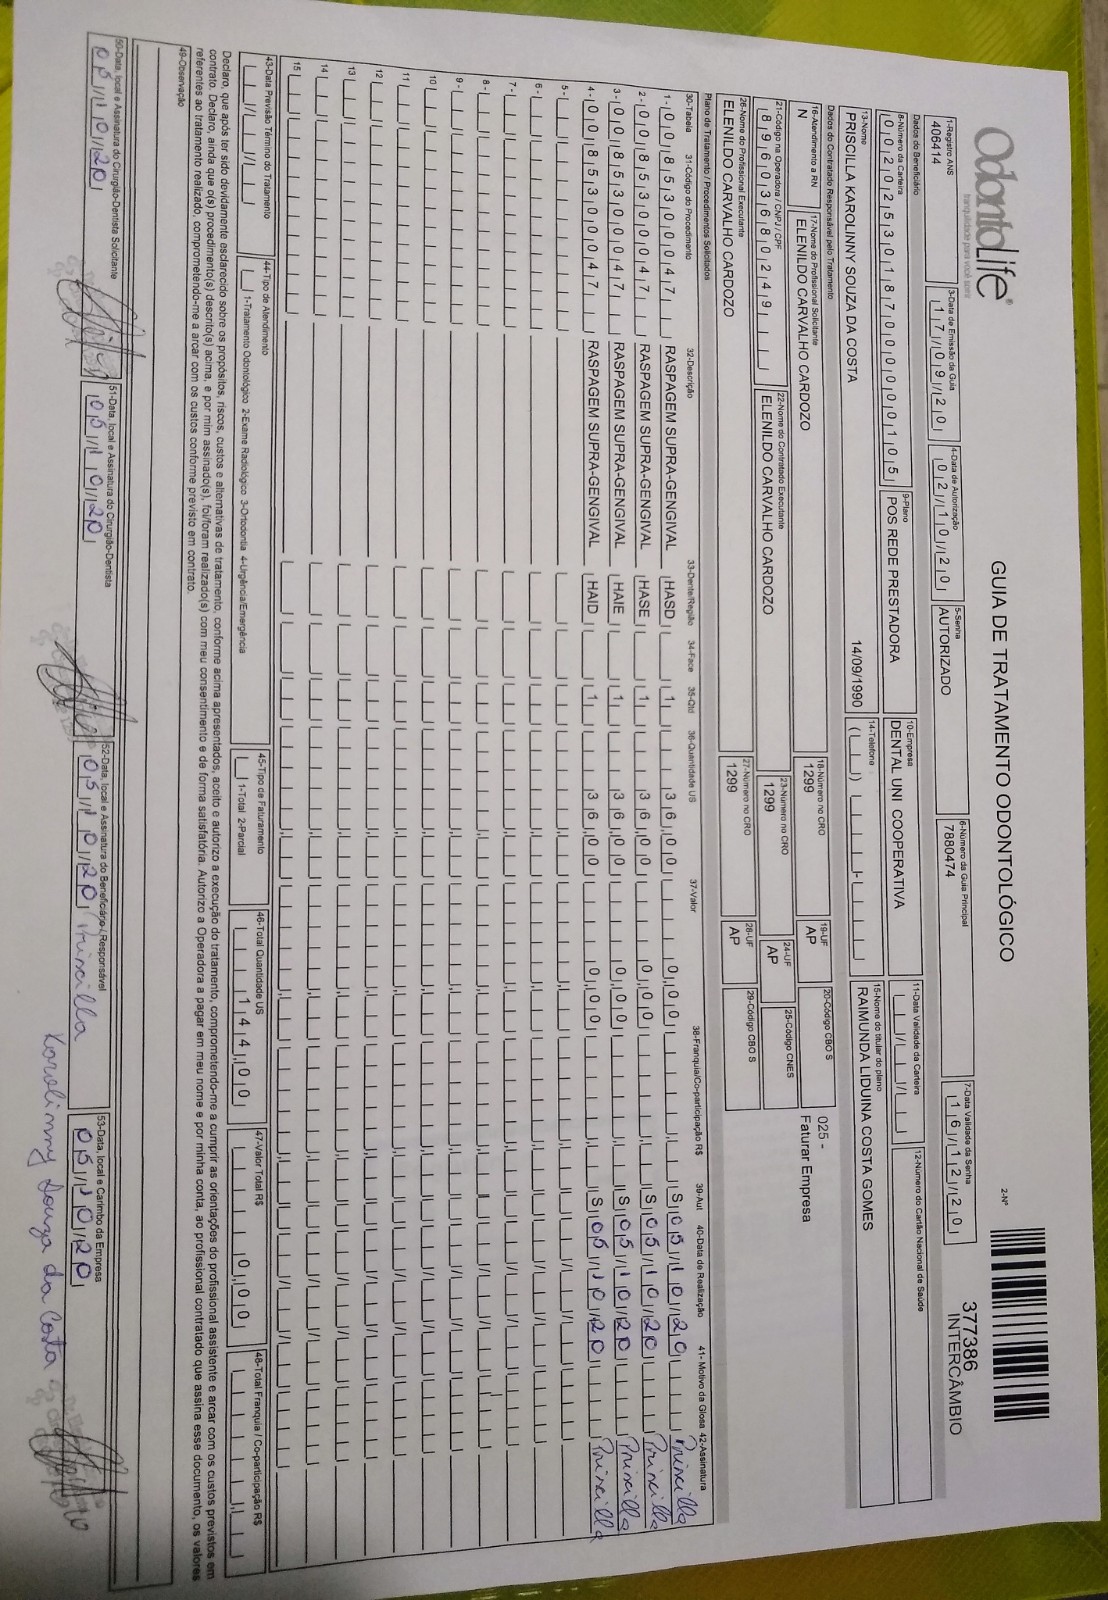 OdontoLife®
tranquilidade para você sorrir
GUIA DE TRATAMENTO ODONTOLÓGICO
2-Nº
377386
INTERCÂMBIO
1-Registro ANS
406414
3-Data de Emissão da Guia
17/09/20
4-Data de Autorização
02/10/20
5-Senha
AUTORIZADO
6-Número da Guia Principal
7880474
7-Data Validade da Senha
16/12/20
Dados do Beneficiário
8-Número da Carteira
00202530187000000105
9-Plano
POS REDE PRESTADORA
10-Empresa
DENTAL UNI COOPERATIVA
11-Data Validade da Carteira
12-Número do Cartão Nacional de Saúde
13-Nome
PRISCILLA KAROLINNY SOUZA DA COSTA
14/09/1990
14-Telefone
15-Nome do titular do plano
RAIMUNDA LIDUINA COSTA GOMES
Dados do Contratado Responsável pelo Tratamento
16-Atendimento a RN
N
17-Nome do Profissional Solicitante
ELENILDO CARVALHO CARDOZO
18-Número no CRO
1299
19-UF
AP
20-Código CBO S
025 -
Faturar Empresa
21-Código na Operadora / CNPJ / CPF
89603680249
22-Nome do Contratado Executante
ELENILDO CARVALHO CARDOZO
23-Número no CRO
1299
24-UF
AP
25-Código CNES
26-Nome do Profissional Executante
ELENILDO CARVALHO CARDOZO
27-Número no CRO
1299
28-UF
AP
29-Código CBO S
Plano de Tratamento / Procedimentos Solicitados
30-Tabela 31-Código do Procedimento 32-Descrição 33-Dente/Região 34-Face 35-Qtd 36-Quantidade US 37-Valor 38-Franquia/Co-participação R$ 39-Aut 40-Data de Realização 41- Motivo da Glosa 42-Assinatura
1- 00 85300047 RASPAGEM SUPRA-GENGIVAL HASD 1 36,00 0,00 S 05/10/20 Priscilla
2- 00 85300047 RASPAGEM SUPRA-GENGIVAL HASE 1 36,00 0,00 S 05/10/20 Priscilla
3- 00 85300047 RASPAGEM SUPRA-GENGIVAL HAIE 1 36,00 0,00 S 05/10/20 Priscilla
4- 00 85300047 RASPAGEM SUPRA-GENGIVAL HAID 1 36,00 0,00 S 05/10/20 Priscilla
5-
6-
7-
8-
9-
10
11
12
13
14
15
43-Data Previsão Término do Tratamento
44-Tipo de Atendimento
1-Tratamento Odontológico 2-Exame Radiológico 3-Ortodontia 4-Urgência/Emergência
45-Tipo de Faturamento
1-Total 2-Parcial
46-Total Quantidade US
144,00
47-Valor Total R$
0,00
48-Total Franquia / Co-participação R$
Declaro, que após ter sido devidamente esclarecido sobre os propósitos, riscos, custos e alternativas de tratamento, conforme acima apresentados, aceito e autorizo a execução do tratamento, comprometendo-me a cumprir as orientações do profissional assistente e arcar com os custos previstos em
contrato. Declaro, ainda que o(s) procedimento(s) descrito(s) acima, e por mim assinado(s), foi/foram realizado(s) com meu consentimento e de forma satisfatória. Autorizo a Operadora a pagar em meu nome e por minha conta, ao profissional contratado que assina esse documento, os valores
referentes ao tratamento realizado, comprometendo-me a arcar com os custos conforme previsto em contrato.
49-Observação
50-Data, local e Assinatura do Cirurgião-Dentista Solicitante
05/10/20
51-Data, local e Assinatura do Cirurgião-Dentista
05/10/20
52-Data, local e Assinatura do Beneficiário / Responsável
05/10/20 Priscilla
Karolinny Souza da Costa
53-Data, local e Carimbo da Empresa
05/10/20